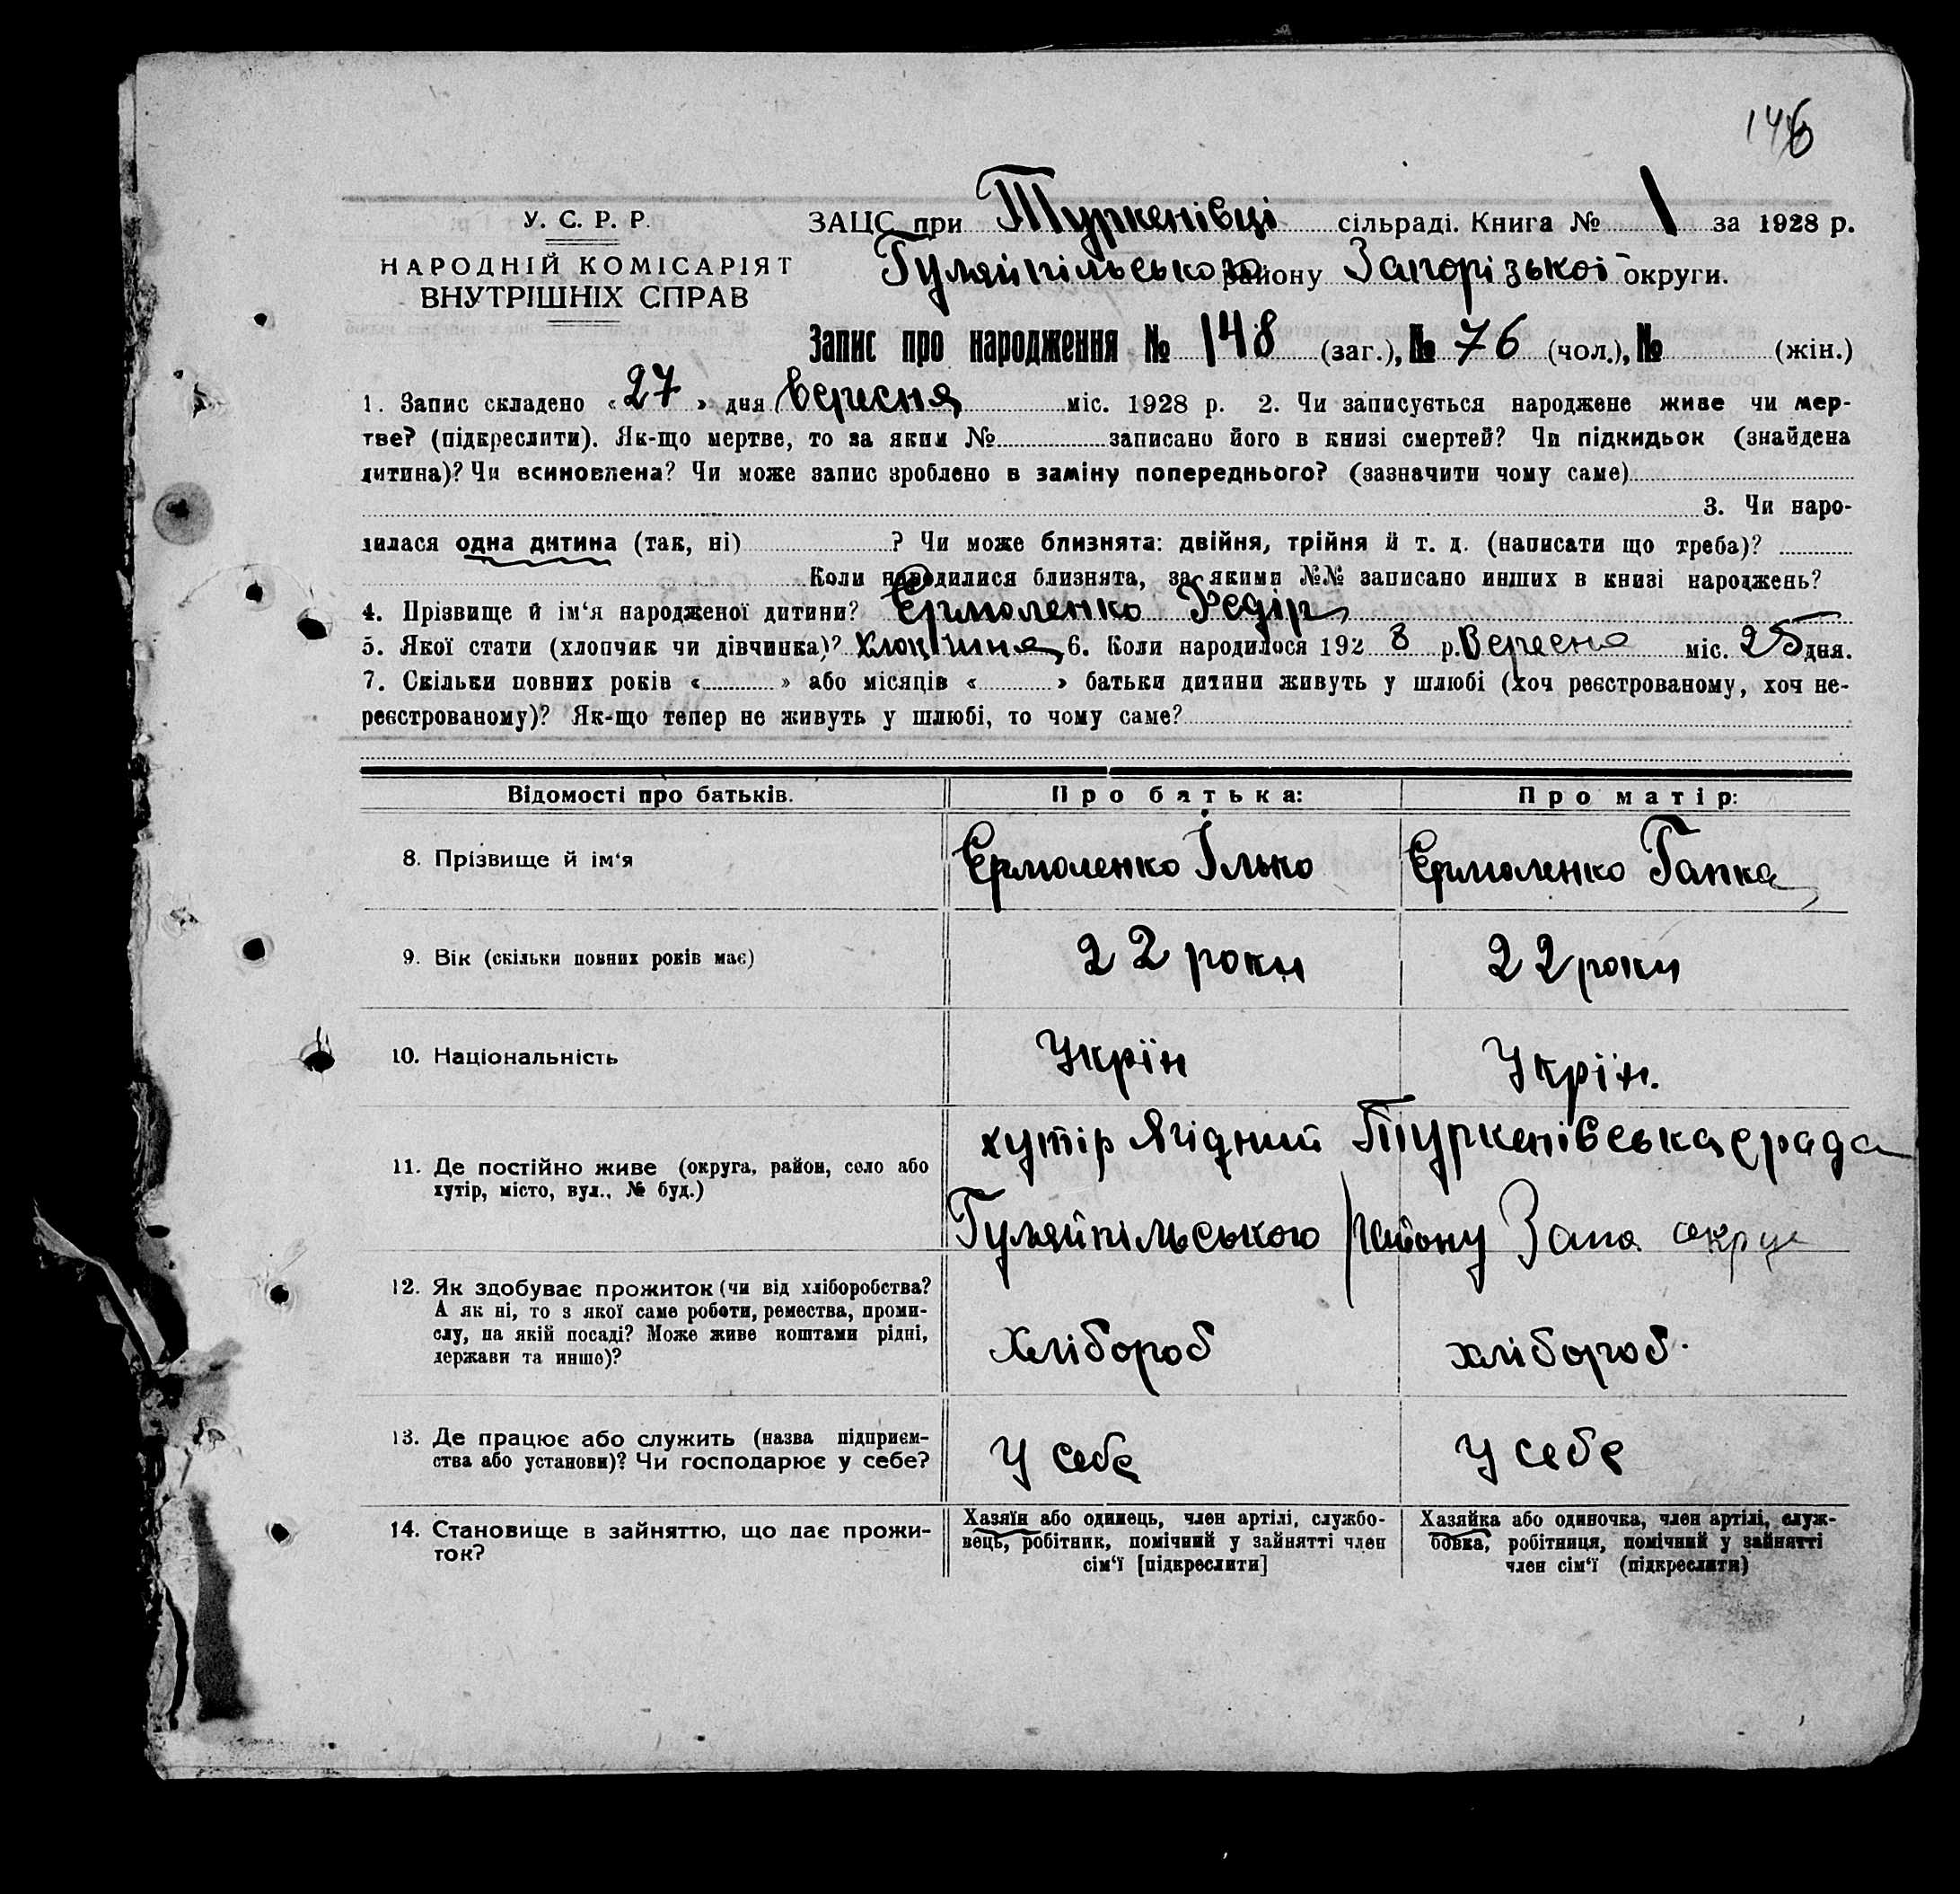 146
У. С. Р. Р.
НАРОДНІЙ КОМІСАРІЯТ
ВНУТРІШНІХ СПРАВ
ЗАЦС при Туркенівці сільраді. Книга № 1 за 1928 р.
Гуляйпільського району Запорізької округи.
Запис про народження № 148 (заг.), № 76 (чол.), № (жін.)
1. Запис складено «27» дня вересня міс. 1928 р. 2. Чи записується народжене живе чи мер-
тве? (підкреслити). Як-що мертве, то за яким № записано його в книзі смертей? Чи підкидьок (знайдена
дитина)? Чи всиновлена? Чи може запис зроблено в заміну попереднього? (зазначити чому саме)
3. Чи наро-
дилася одна дитина (так, ні) ? Чи може близнята: двійня, трійня й т. д. (написати що треба)?
Коли народилися близнята, за якими №№ записано инших в книзі народжень?
4. Прізвище й ім‘я народженої дитини? Єрмоленко Федір
5. Якої стати (хлопчик чи дівчинка)? хлопчина 6. Коли народилося 1928 р. Вересня міс. 25 дня.
7. Скільки повних років « » або місяців « » батьки дитини живуть у шлюбі (хоч реєстрованому, хоч не-
реєстрованому)? Як-що тепер не живуть у шлюбі, то чому саме?
Відомості про батьків. Про батька: Про матір:
8. Прізвище й ім‘я Єрмоленко Ілько Єрмоленко Гапка
9. Вік (скільки повних років має) 22 роки 22 роки
10. Національність Укрїн Укрїн.
11. Де постійно живе (округа, район, село або
хутір, місто, вул., № буд.)
хутір Ягідний Туркенівська срада
Гуляйпільського району Запо. округи
12. Як здобуває прожиток (чи від хліборобства?
А як ні, то з якої саме роботи, ремества, проми-
слу, на якій посаді? Може живе коштами рідні,
держави та инше)?
Хлібороб хлібороб.
13. Де працює або служить (назва підприєм-
ства або установи)? Чи господарює у себе?
У себе У себе
14. Становище в зайняттю, що дає прожи-
ток?
Хазяїн або одинець, член артілі, службо-
вець, робітник, помічний у зайнятті член
сім‘ї [підкреслити]
Хазяйка або одиночка, член артілі, служ-
бовка, робітниця, помічний у зайнятті
член сім‘ї (підкреслити)